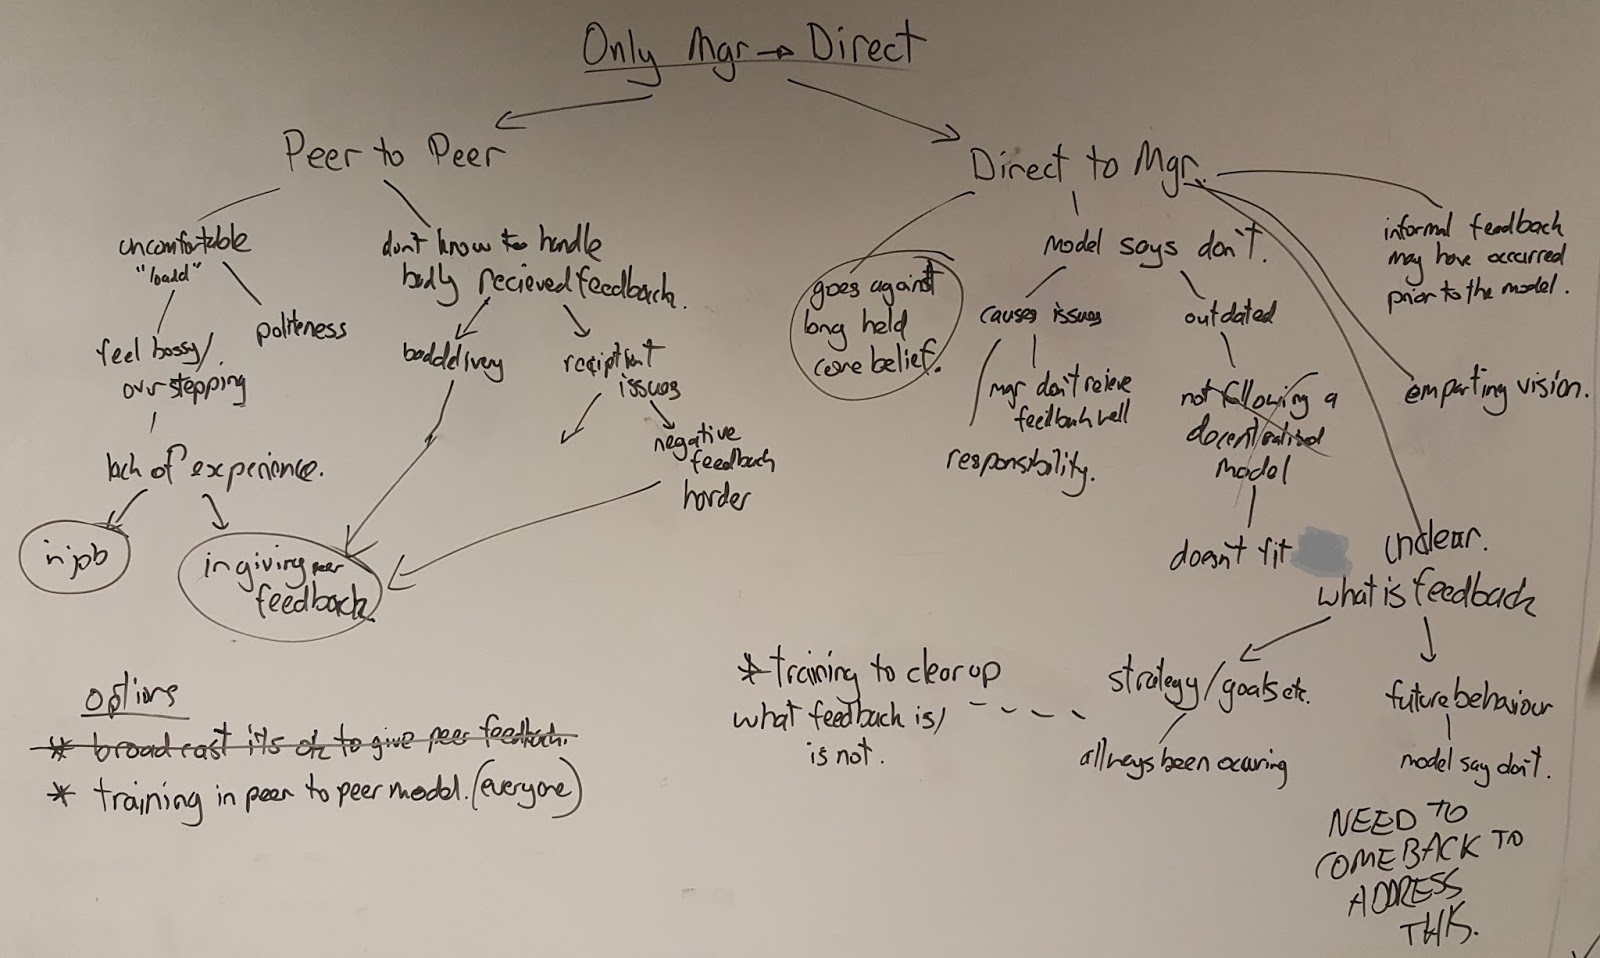 Only Mgr → Direct
Peer to Peer
Direct to Mgr.
uncomfortable
"loadd"
feel bossy/
overstepping
politeness
lack of experience.
in job
in giving peer
feedback
don't know to handle
badly recieved feedback.
bad delivery
recipient
issues
negative
feedback
harder
goes against
long held
core belief.
model says don't.
causes issues
mgr don't recieve
feedback well
responsibility.
outdated
not following a
decentralised
model
doesn't fit
informal feedback
may have occurred
prior to the model.
emparting vision.
unclear.
what is feedback
strategy/goals etc.
allways been occuring
future behaviour
model say don't.
NEED TO
COME BACK TO
ADDRESS
THIS.
* training to clear up
what feedback is/
is not.
options
* broadcast its ok to give peer feedback.
* training in peer to peer model. (everyone)